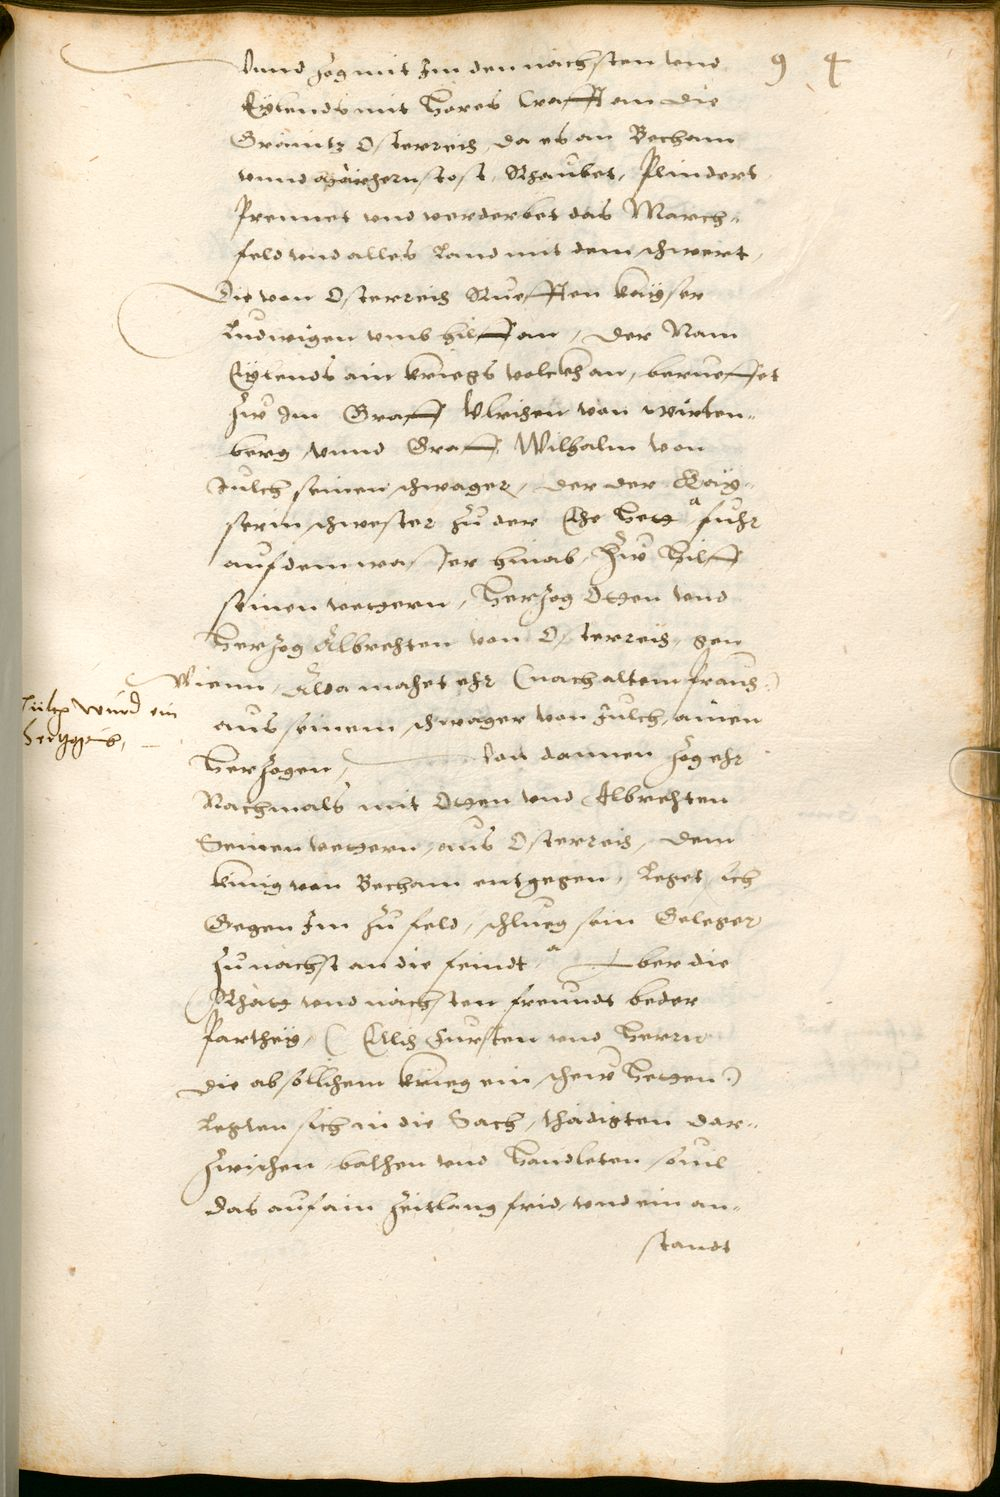 9 4
Vnnd zog mit Im den nächsten vnd
Eylends mit Hores Crafft an die
Gränitz Osterreich da es an Becham
vnnd Märhern stost, Rhaubet, Plindert
Prennet vnd verderbet das March-
feld vnd alles Land mit dem schwert,
Die von Osterreich Rüefften Kaÿser
Ludwigen vmb hilff an, Der Nam
Eÿlends ain Kriegs volckh an, berüeffet
zw Im Graff Vlrichen von wirten-
berg vnnd Graff Wilhalm von
Julch seinen schwager, der der Kaÿ-
serin schwester zu der Ehe Hett, fuhr
auf dem wasser hinab, Zw Hilff
seinen vettern, Herzog Otten vnd
Herzog Albrechten von Osterreich, gen
Wienn, Alda machet ehr (nach altem brauch)
aus seinem schwager von Julch, ainen
Herzogen, Von dannen zog ehr
Nachmals mit Otten vnd Albrechten
Seinen vettern, aus Osterreich, dem
Künig von Becham entgegen, Leget sich
Gegen Im zu feld, schlueg sein Geleger
zu nächst an die feindt, Aber die
Rhätt vnd nächsten freundt beder
Parthey, (Etlich Fürsten vnd Herrn
die ab sollichem Krieg ein schew Hetten)
Legten sich in die Sach, thädigten dar-
zwischen, bathen vnd Handleten souil
das auf ain Zeitlang frid, vnd ein an-
standt
Jülch wurd ein
Hertzogthumb,